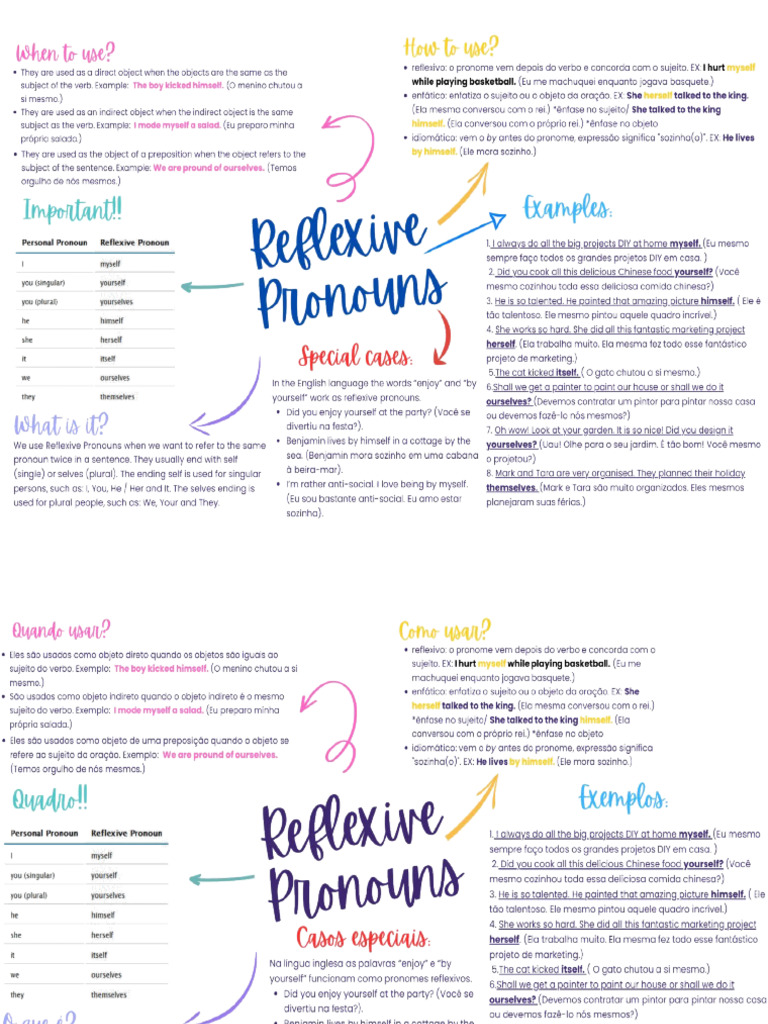 When to use?
• They are used as a direct object when the objects are the same as the
subject of the verb. Example: The boy kicked himself. (O menino chutou a
si mesmo.)
• They are used as an indirect object when the indirect object is the same
subject as the verb. Example: I mode myself a salad. (Eu preparo minha
própria salada.)
• They are used as the object of a preposition when the object refers to the
subject of the sentence. Example: We are pround of ourselves. (Temos
orgulho de nós mesmos.)
How to use?
• reflexivo: o pronome vem depois do verbo e concorda com o sujeito. EX: I hurt myself
while playing basketball. (Eu me machuquei enquanto jogava basquete.)
• enfático: enfatiza o sujeito ou o objeto da oração. EX: She herself talked to the king.
(Ela mesma conversou com o rei.) *ênfase no sujeito/ She talked to the king
himself. (Ela conversou com o próprio rei.) *ênfase no objeto
• idiomático: vem o by antes do pronome, expressão significa "sozinha(o)". EX: He lives
by himself. (Ele mora sozinho.)
Important!!
Personal Pronoun Reflexive Pronoun
I myself
you (singular) yourself
you (plural) yourselves
he himself
she herself
it itself
we ourselves
they themselves
Reflexive
Pronouns
Examples:
1. I always do all the big projects DIY at home myself. (Eu mesmo
sempre faço todos os grandes projetos DIY em casa. )
2. Did you cook all this delicious Chinese food yourself? (Você
mesmo cozinhou toda essa deliciosa comida chinesa?)
3. He is so talented. He painted that amazing picture himself. ( Ele é
tão talentoso. Ele mesmo pintou aquele quadro incrível.)
4. She works so hard. She did all this fantastic marketing project
herself. (Ela trabalha muito. Ela mesma fez todo esse fantástico
projeto de marketing.)
5.The cat kicked itself. ( O gato chutou a si mesmo.)
6.Shall we get a painter to paint our house or shall we do it
ourselves? (Devemos contratar um pintor para pintar nossa casa
ou devemos fazê-lo nós mesmos?)
7. Oh wow! Look at your garden. It is so nice! Did you design it
yourselves? (Uau! Olhe para o seu jardim. É tão bom! Você mesmo
o projetou?)
8. Mark and Tara are very organised. They planned their holiday
themselves. (Mark e Tara são muito organizados. Eles mesmos
planejaram suas férias.)
Special cases:
In the English language the words "enjoy" and "by
yourself" work as reflexive pronouns.
• Did you enjoy yourself at the party? (Você se
divertiu na festa?).
• Benjamin lives by himself in a cottage by the
sea. (Benjamin mora sozinho em uma cabana
à beira-mar).
• I'm rather anti-social. I love being by myself.
(Eu sou bastante anti-social. Eu amo estar
sozinho).
What is it?
We use Reflexive Pronouns when we want to refer to the same
pronoun twice in a sentence. They usually end with self
(single) or selves (plural). The ending self is used for singular
persons, such as: I, You, He / Her and It. The selves ending is
used for plural people, such as: We, Your and They.
Quando usar?
• Eles são usados como objeto direto quando os objetos são iguais ao
sujeito do verbo. Exemplo: The boy kicked himself. (O menino chutou a si
mesmo.)
• São usados como objeto indireto quando o objeto indireto é o mesmo
sujeito do verbo. Exemplo: I mode myself a salad. (Eu preparo minha
própria salada.)
• Eles são usados como objeto de uma preposição quando o objeto se
refere ao sujeito do oração. Exemplo: We are pround of ourselves.
(Temos orgulho de nós mesmos.)
Como usar?
• reflexivo: o pronome vem depois do verbo e concorda com o
sujeito. EX: I hurt myself while playing basketball. (Eu me
machuquei enquanto jogava basquete.)
• enfático: enfatiza o sujeito ou o objeto da oração. EX: She
herself talked to the king. (Ela mesma conversou com o rei.)
*ênfase no sujeito/ She talked to the king himself. (Ela
conversou com o próprio rei.) *ênfase no objeto
• idiomático: vem o by antes do pronome, expressão significa
"sozinha(o)". EX: He lives by himself. (Ele mora sozinho.)
Quadro!!
Personal Pronoun Reflexive Pronoun
I myself
you (singular) yourself
you (plural) yourselves
he himself
she herself
it itself
we ourselves
they themselves
Reflexive
Pronouns
Exemplos:
1. I always do all the big projects DIY at home myself. (Eu mesmo
sempre faço todos os grandes projetos DIY em casa. )
2. Did you cook all this delicious Chinese food yourself? (Você
mesmo cozinhou toda essa deliciosa comida chinesa?)
3. He is so talented. He painted that amazing picture himself. ( Ele é
tão talentoso. Ele mesmo pintou aquele quadro incrível.)
4. She works so hard. She did all this fantastic marketing project
herself. (Ela trabalha muito. Ela mesma fez todo esse fantástico
projeto de marketing.)
5.The cat kicked itself. ( O gato chutou a si mesmo.)
6.Shall we get a painter to paint our house or shall we do it
ourselves? (Devemos contratar um pintor para pintar nossa casa
ou devemos fazê-lo nós mesmos?)
Casos especiais:
Na língua inglesa as palavras "enjoy" e "by
yourself" funcionam como pronomes reflexivos.
• Did you enjoy yourself at the party? (Você se
divertiu na festa?).
• Benjamin lives by himself in a cottage by the
O que é?